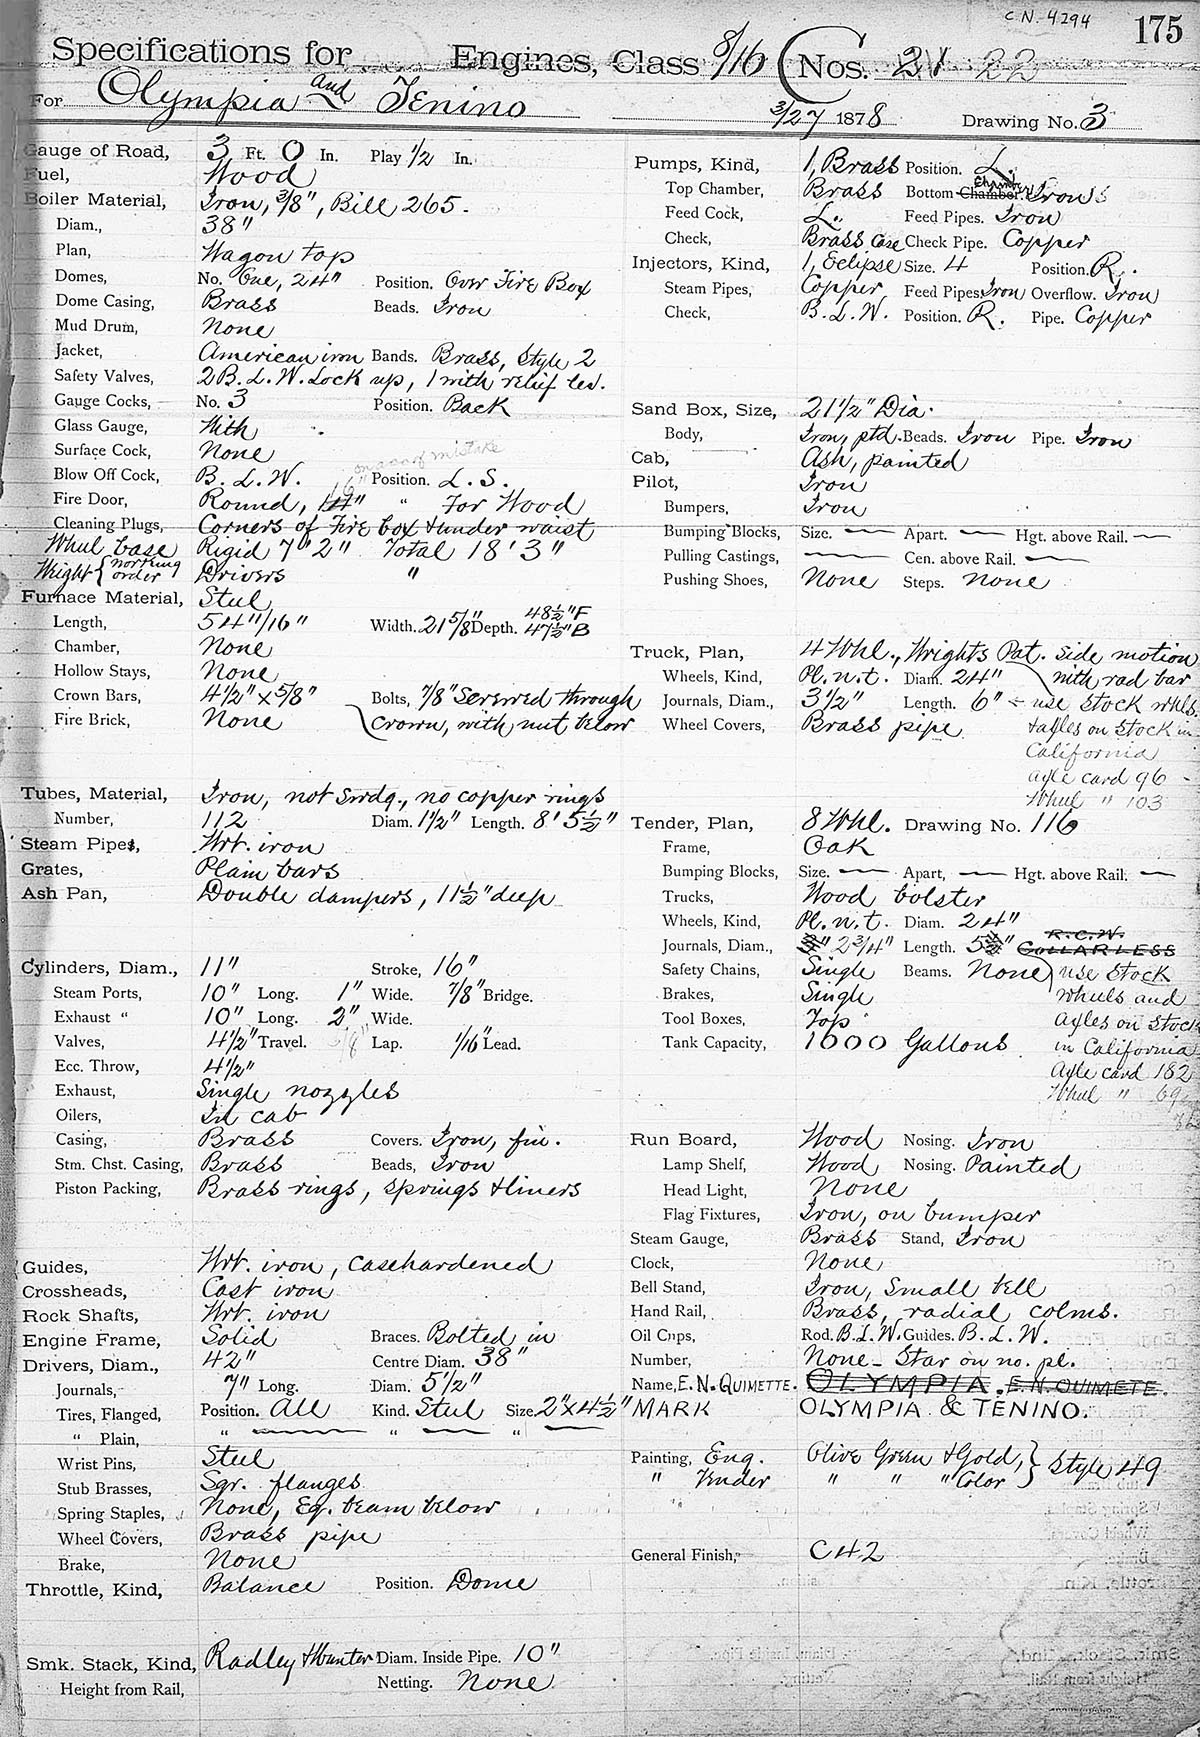 C N. 4294
175
Specifications for Engines, Class 8/16 C Nos. 21 22
For Olympia and Tenino
3/27 1878 Drawing No. 3
Gauge of Road, 3 Ft. 0 In. Play 1/2 In.
Fuel, Wood
Boiler Material, Iron, 3/8", Bill 265.
Diam., 38"
Plan, Wagon top
Domes, No. One, 24" Position. Over Fire Box
Dome Casing, Brass Beads. Iron
Mud Drum, None
Jacket, American iron Bands. Brass, Style 2
Safety Valves, 2 B. L. W. Lock up, 1 with relief lev.
Gauge Cocks, No. 3 Position. Back
Glass Gauge, With
Surface Cock, None
on acc of mistake
Blow Off Cock, B. L. W. Position. L. S.
Fire Door, Round, 14" 16" " For Wood
Cleaning Plugs, Corners of Fire box & under waist
Wheel base Rigid 7' 2" Total 18' 3"
Weight { working order Drivers "
Furnace Material, Steel
Length, 54 "/16" Width. 21 5/8" Depth. 48 1/2" F 47 1/2" B
Chamber, None
Hollow Stays, None
Crown Bars, 4 1/2" x 5/8" Bolts, 7/8" Screwed through
Fire Brick, None crown, with nut below
Tubes, Material, Iron, not Swdg., no copper rings
Number, 112 Diam. 1 1/2" Length. 8' 5 1/2"
Steam Pipes, Wrt. iron
Grates, Plain bars
Ash Pan, Double dampers, 11 1/2" deep
Cylinders, Diam., 11" Stroke, 16"
Steam Ports, 10" Long. 1" Wide. 7/8" Bridge.
Exhaust " 10" Long. 2" Wide.
Valves, 4 1/2" Travel. 3/8 Lap. 1/16" Lead.
Ecc. Throw, 4 1/2"
Exhaust, Single nozzles
Oilers, In cab
Casing, Brass Covers. Iron, fin.
Stm. Chst. Casing, Brass Beads, Iron
Piston Packing, Brass rings, springs & liners
Guides, Wrt. iron, casehardened
Crossheads, Cast iron
Rock Shafts, Wrt. iron
Engine Frame, Solid Braces. Bolted in
Drivers, Diam., 42" Centre Diam. 38"
Journals, 7" Long. Diam. 5 1/2"
Tires, Flanged, Position. All Kind. Steel Size. 2" x 4 1/2"
" Plain, " — " — " —
Wrist Pins, Steel
Stub Brasses, Sqr. flanges
Spring Staples, None, Eq. beam below
Wheel Covers, Brass pipe
Brake, None
Throttle, Kind, Balance Position. Dome
Smk. Stack, Kind, Radley & Hunter Diam. Inside Pipe. 10"
Height from Rail, Netting. None
Pumps, Kind, 1, Brass Position. L.
Top Chamber, Brass Bottom Chamber. Chamber Iron
Feed Cock, L. Feed Pipes. Iron
Check, Brass Case Check Pipe. Copper
Injectors, Kind, 1, Eclipse Size. 4 Position. R.
Steam Pipes, Copper Feed Pipes. Iron Overflow. Iron
Check, B. L. W. Position. R. Pipe. Copper
Sand Box, Size, 21 1/2" Dia.
Body, Iron, ptd. Beads. Iron Pipe. Iron
Cab, Ash, painted
Pilot, Iron
Bumpers, Iron
Bumping Blocks, Size. — Apart. — Hgt. above Rail. —
Pulling Castings, — Cen. above Rail. —
Pushing Shoes, None Steps. None
Truck, Plan, 4 Whl., Wrights Pat. side motion
Wheels, Kind, Pl. n. t. Diam. 24" with rad bar
Journals, Diam., 3 1/2" Length. 6" use stock whls.
Wheel Covers, Brass pipe & axles on stock in
California
axle card 96
Wheel " 103
Tender, Plan, 8 Whl. Drawing No. 116
Frame, Oak
Bumping Blocks, Size. — Apart, — Hgt. above Rail. —
Trucks, Wood bolster
Wheels, Kind, Pl. n. t. Diam. 24"
R. C. W.
Journals, Diam., 3" 2 3/4" Length. 5 1/2" COLLARLESS
Safety Chains, Single Beams. None use stock
Brakes, Single wheels and
Tool Boxes, Top axles on stock
Tank Capacity, 1000 Gallons in California
Axle card 182
Wheel " 69
Run Board, Wood Nosing. Iron
Lamp Shelf, Wood Nosing. Painted
Head Light, None
Flag Fixtures, Iron, on bumper
Steam Gauge, Brass Stand, Iron
Clock, None
Bell Stand, Iron, Small bell
Hand Rail, Brass, radial colms.
Oil Cups, Rod. B. L. W. Guides. B. L. W.
Number, None - Star on no. pl.
Name, E. N. QUIMETTE. OLYMPIA. E. N. OUIMETE.
MARK OLYMPIA & TENINO.
Painting, Eng. Olive Green & Gold, } Style 49
" Tender " " " Color
General Finish, C 42